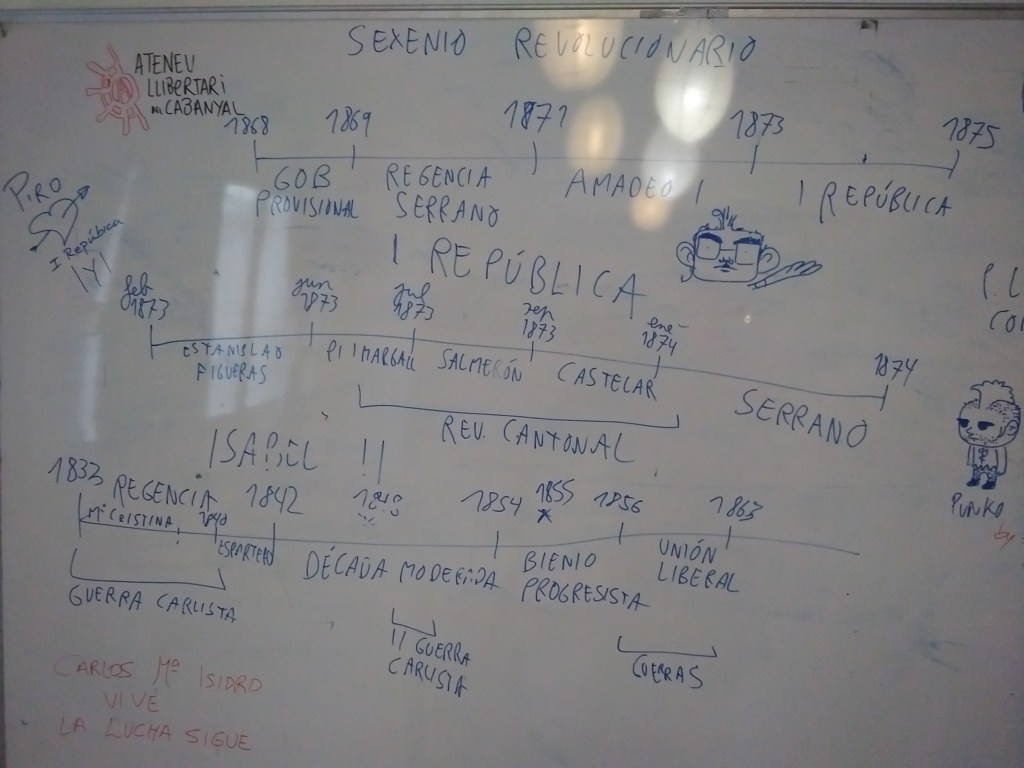 SEXENIO REVOLUCIONARIO
ATENEU
LLIBERTARI
CABANYAL
1868 1869 1871 1873 1875
GOB PROVISIONAL
REGENCIA SERRANO
AMADEO I
I REPÚBLICA
P.RO
I República
I REPÚBLICA
feb 1873
jun 1873
jul 1873
sep 1873
ene 1874
1874
ESTANISLAO FIGUERAS
PI I MARGALL
SALMERÓN
CASTELAR
SERRANO
REV. CANTONAL
ISABEL II
1833 REGENCIA 1842 1854 1855 1856 1863
Mª CRISTINA
1840
ESPARTERO
DÉCADA MODERADA
BIENIO PROGRESISTA
UNIÓN LIBERAL
GUERRA CARLISTA
II GUERRA CARLISTA
PUNKO
by
CARLOS Mª ISIDRO
VIVE
LA LUCHA SIGUE